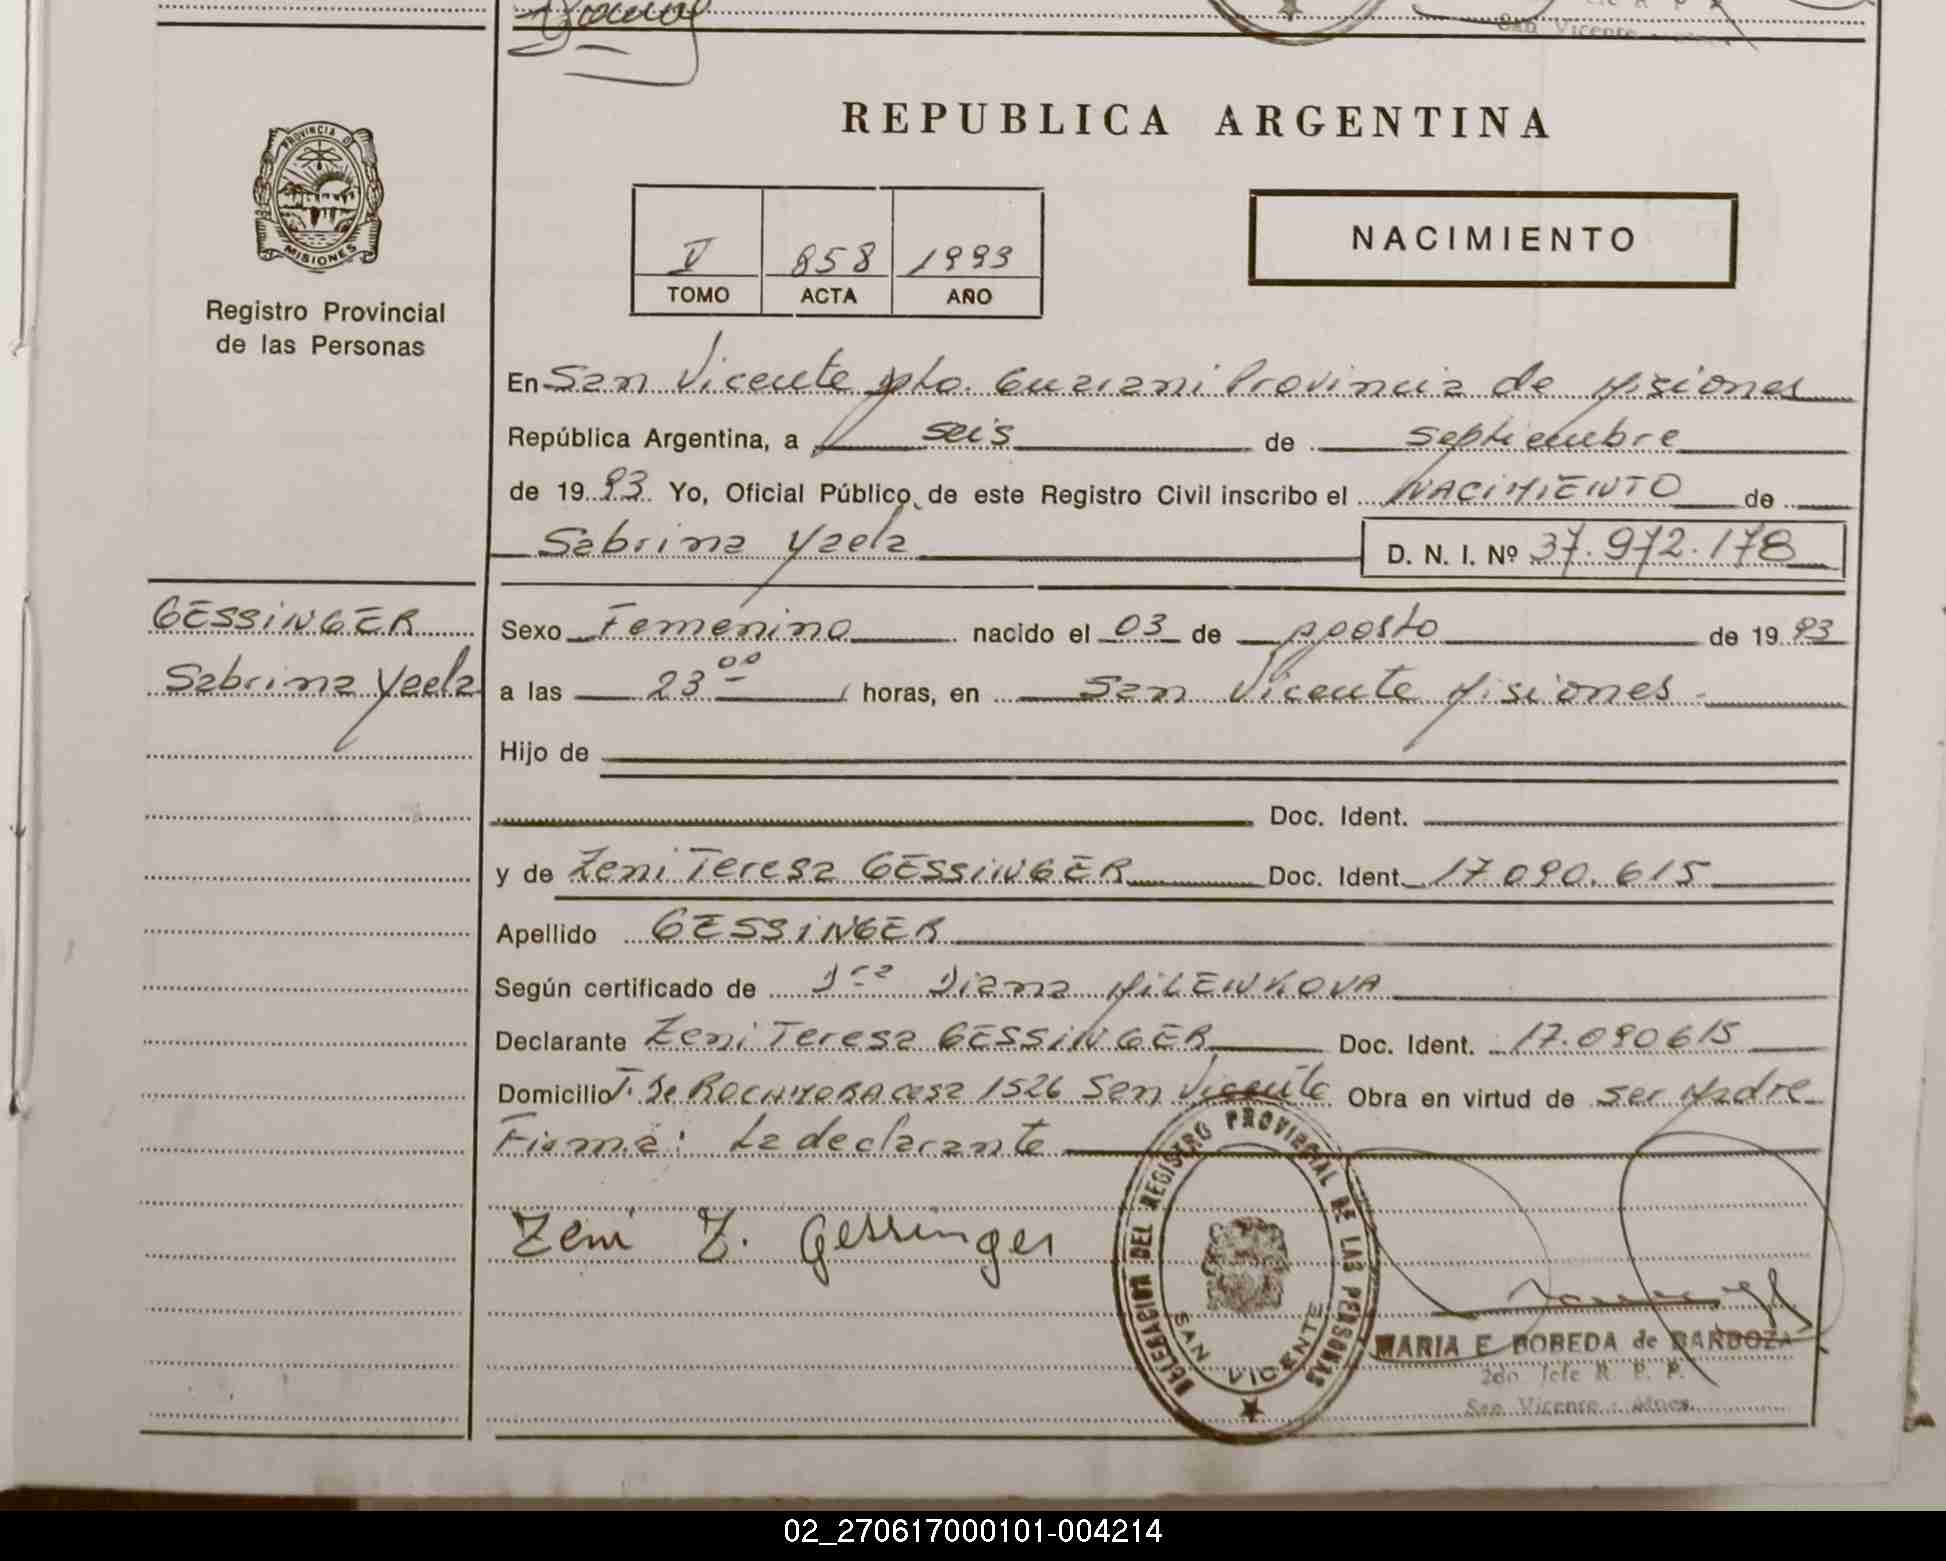 San Vicente
REPUBLICA ARGENTINA
PROVINCIA D
MISIONES
Registro Provincial
de las Personas
V 858 1993
TOMO ACTA AÑO
NACIMIENTO
En San Vicente Dto. Guarani Provincia de Misiones
República Argentina, a seis de Septiembre
de 1993 Yo, Oficial Público de este Registro Civil inscribo el NACIMIENTO de
Sabrina Yaela D. N. I. Nº 37.972.178
GESSINGER
Sabrina Yaela
Sexo Femenino nacido el 03 de Agosto de 1993
a las 23 00 horas, en San Vicente Misiones
Hijo de
Doc. Ident.
y de Zeni Teresa GESSINGER Doc. Ident. 17.090.615
Apellido GESSINGER
Según certificado de Dra Diana MILENKOVA
Declarante Zeni Teresa GESSINGER Doc. Ident. 17.090615
Domicilio T. de ROCAMORA casa 1526 San Vicente Obra en virtud de ser Madre
Firma: La declarante
Zeni T. Gessinger
DELEGACION DEL REGISTRO PROVINCIAL DE LAS PERSONAS
SAN VICENTE
MARIA E BOBEDA de BARBOZA
2do Jefe R. P. P.
San Vicente - Mnes.
02_270617000101-004214